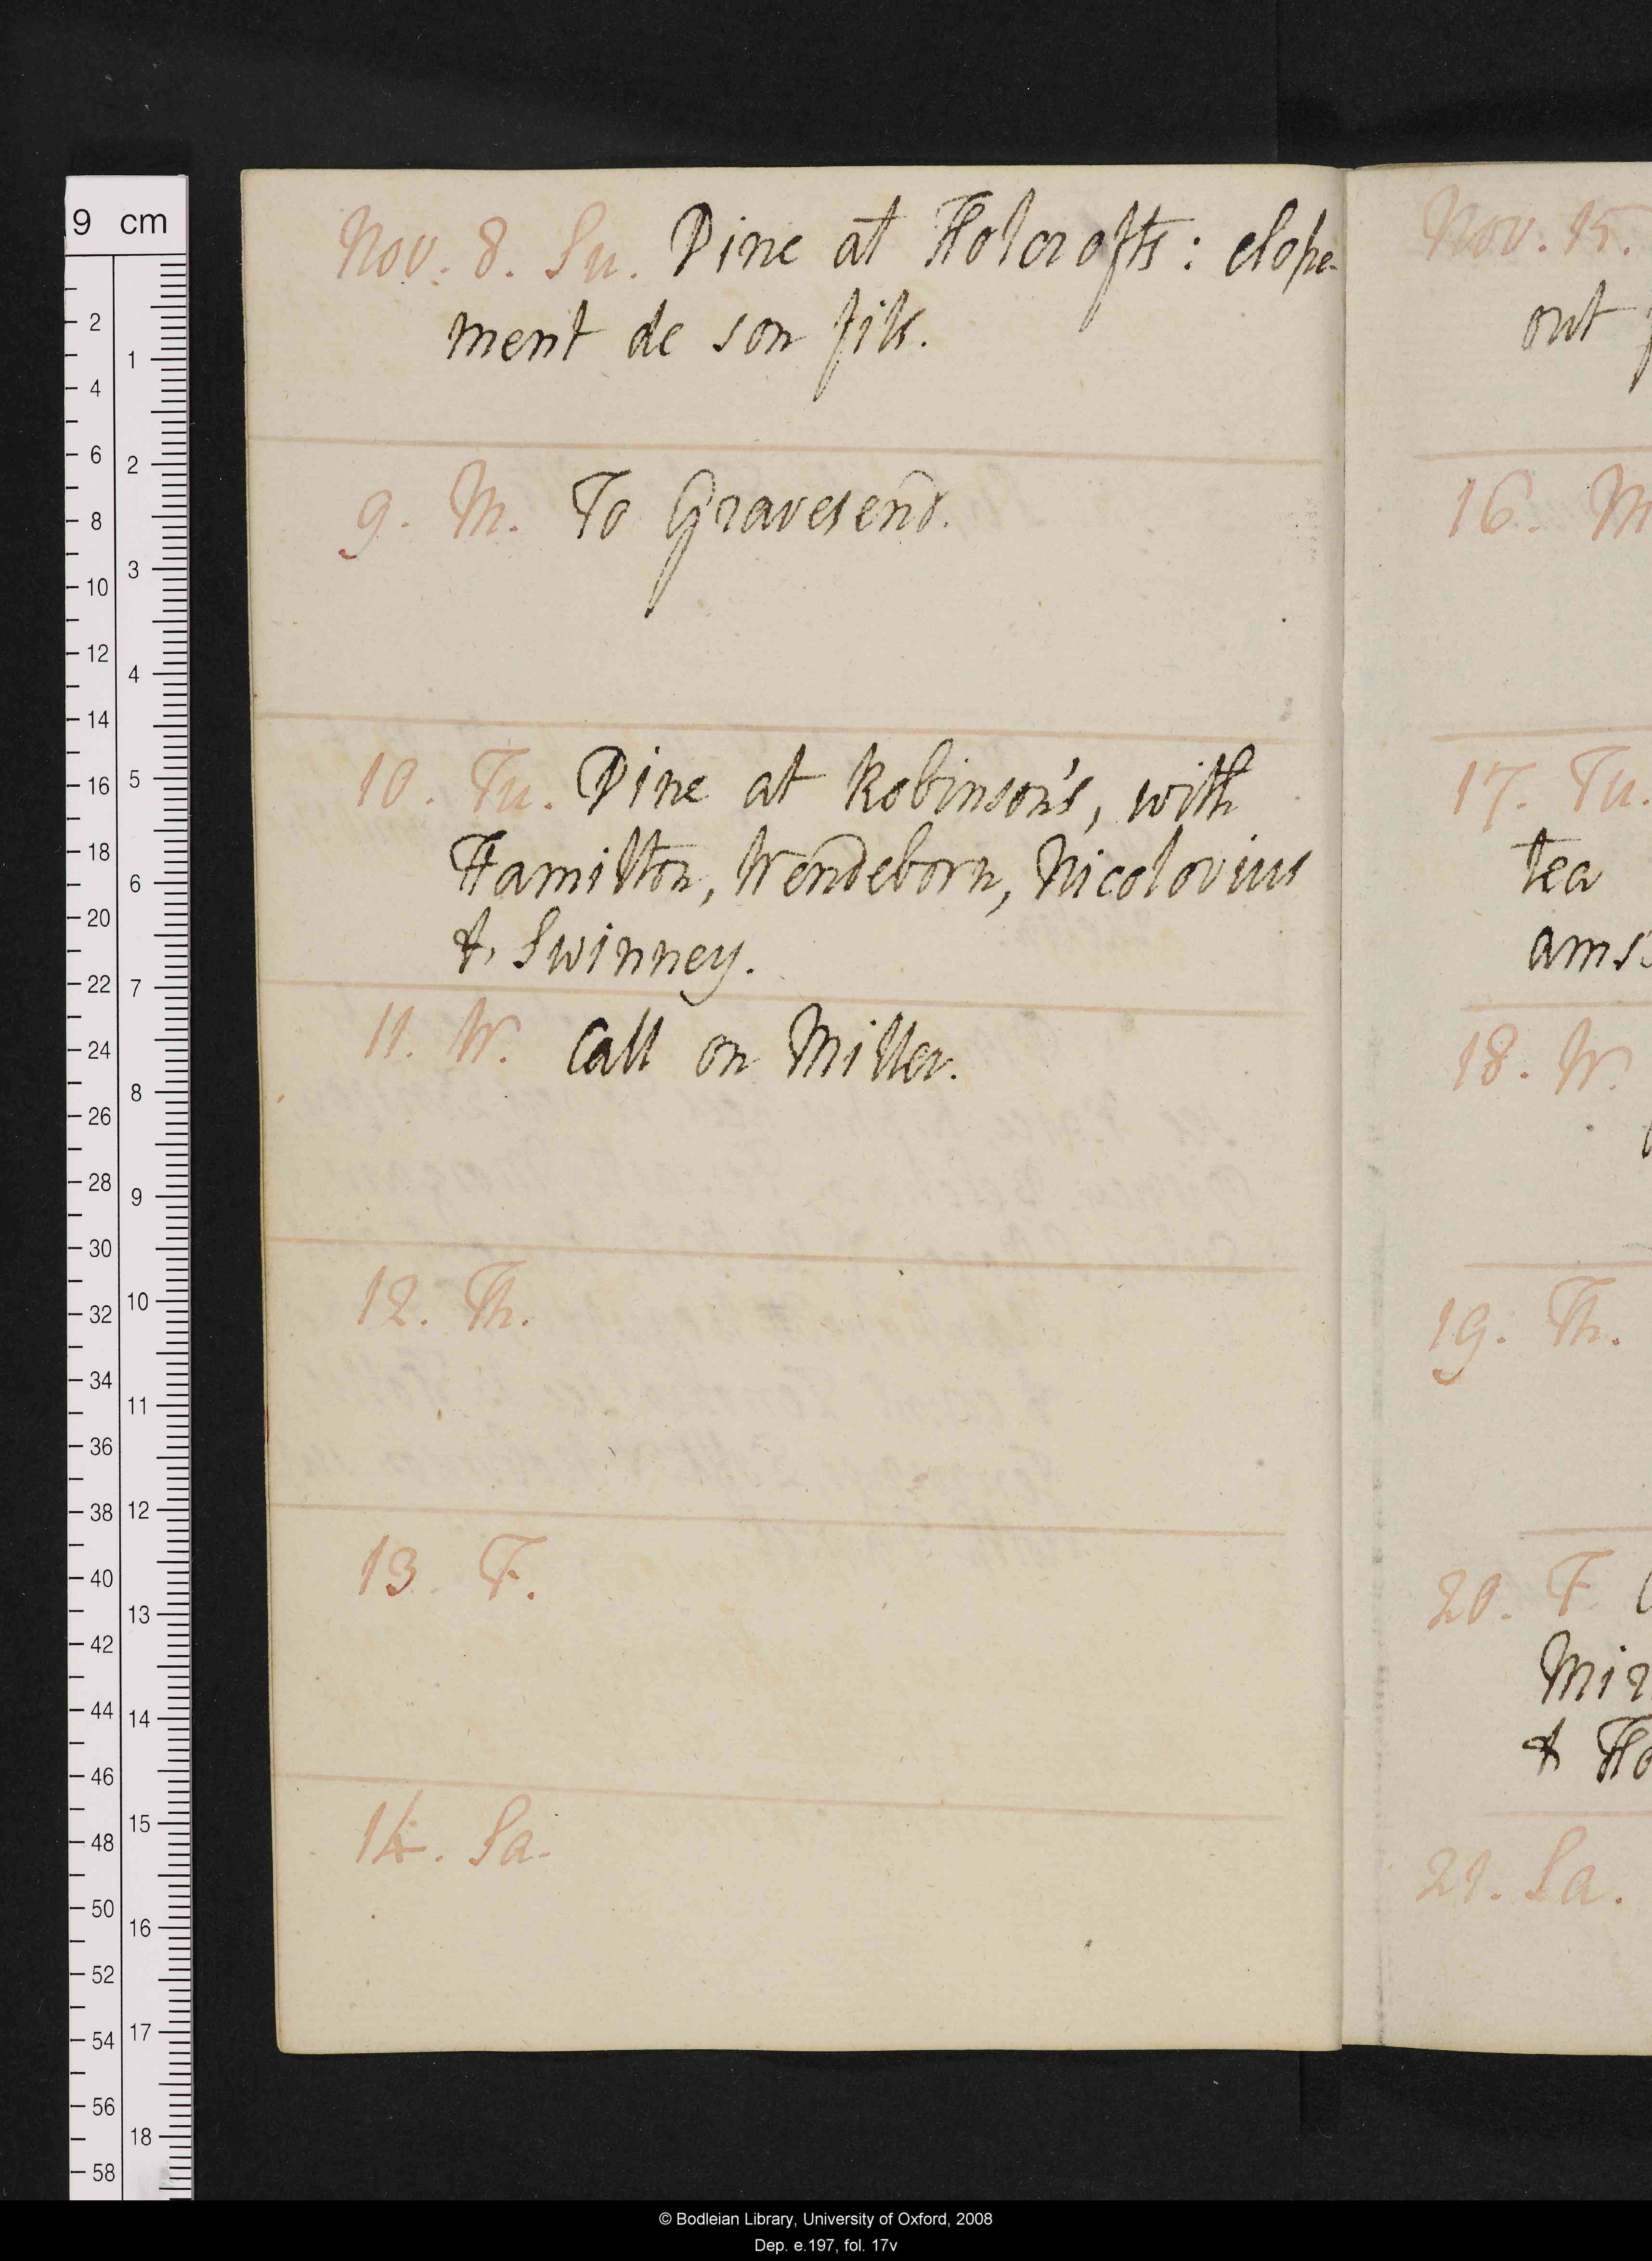 Nov. 8. Su. Dine at Holcrofts: elope-
ment de son fils.
9. M. To Gravesend.
10. Tu. Dine at Robinson's, with
Hamilton, Wendeborn, Nicolovius
& Swinney.
11. W. Call on Miller.
12. Th.
13. F.
14. Sa.
Nov. 15.
out
16. M
17. Tu.
tea
ams
18. W.
19. Th.
20. F.
Mir
& Ho
21. Sa.
9 cm
2
4
6
8
10
12
14
16
18
20
22
24
26
28
30
32
34
36
38
40
42
44
46
48
50
52
54
56
58
1
2
3
4
5
6
7
8
9
10
11
12
13
14
15
16
17
18
© Bodleian Library, University of Oxford, 2008
Dep. e.197, fol. 17v